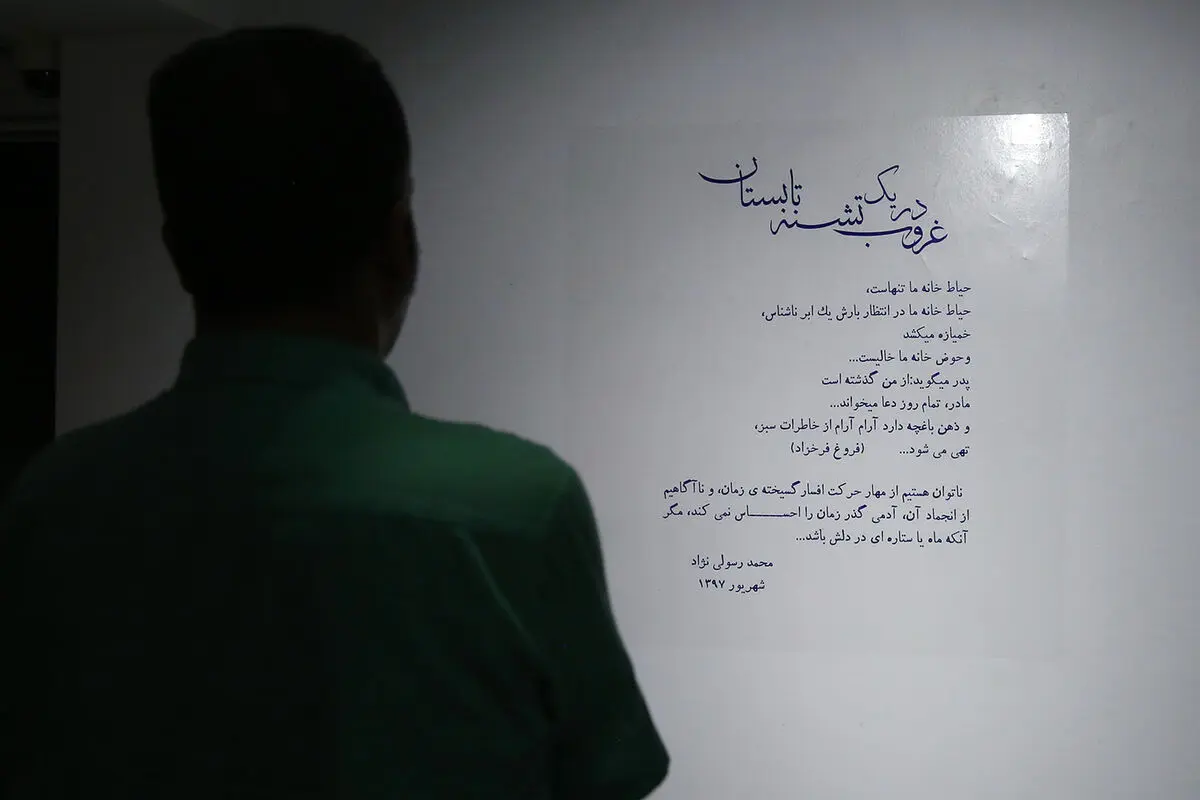 در یک
غروب تشنه تابستان
حیاط خانه ما تنهاست،
حیاط خانه ما در انتظار بارش یك ابر ناشناس،
خمیازه میکشد
وحوض خانه ما خالیست...
پدر میگوید:از من گذشته است
مادر، تمام روز دعا میخواند...
و ذهن باغچه دارد آرام آرام از خاطرات سبز،
تهی می شود... (فروغ فرخزاد)
ناتوان هستیم از مهار حرکت افسار گسیخته ی زمان، و ناآگاهیم
از انجماد آن، آدمی گذر زمان را احســـــــاس نمی کند، مگر
آنکه ماه یا ستاره ای در دلش باشد...
محمد رسولی نژاد
شهریور ۱۳۹۷